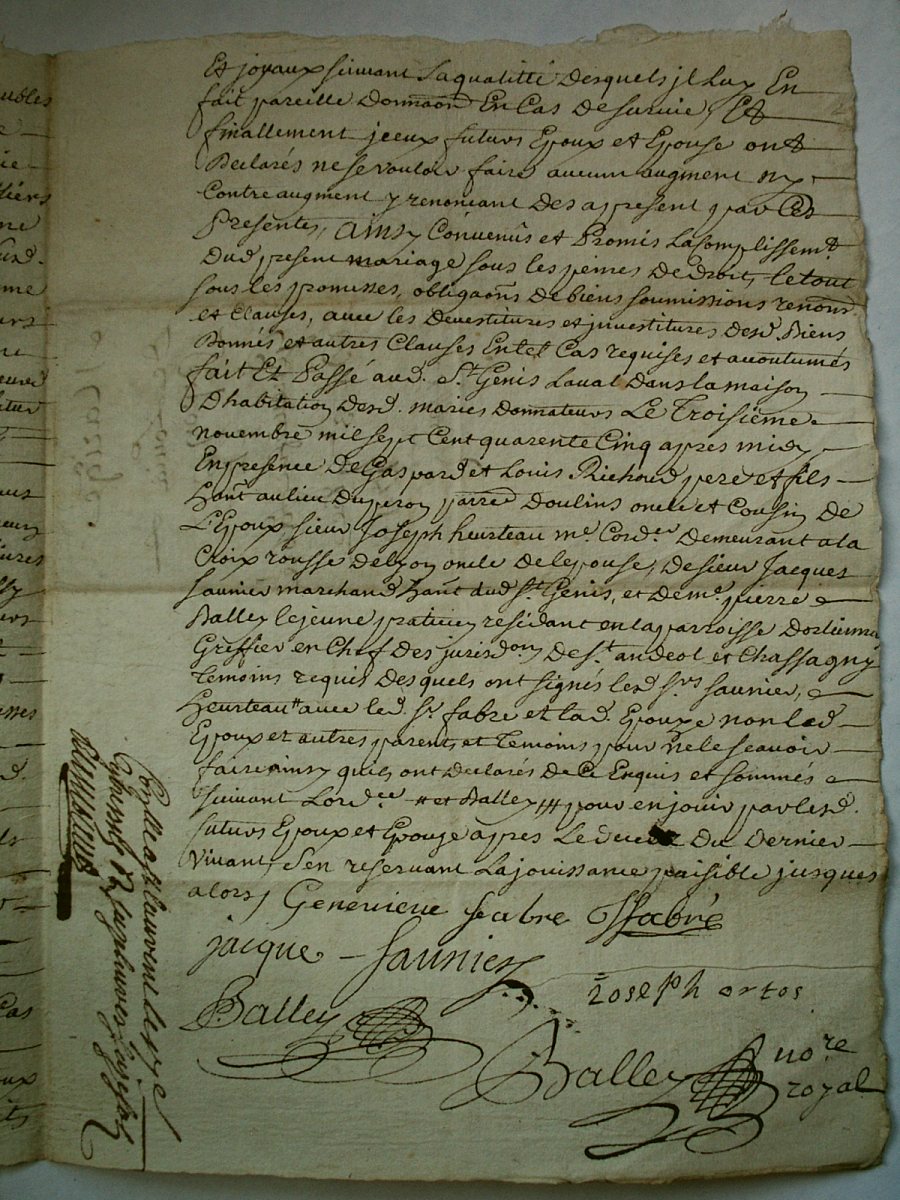 Et joyaux suivant Laqualitté Desquels jl Luy En
fait pareille Donnaon En Cas De survie, Et
finallement jceux futurs Epoux et Epouse ont
Declarés ne se vouloir faire aucun augment ny
Contre augment y renonçant Des apresent par Ces
Presentes, Ainsy Convenus et Promis Lacomplissemt.
Dud. present mariage sous les peines De droit, le tout
sous les promesses, obligaons De biens soumissions renonš
et Clauses, avec les Devestitures et jnvestitures Desd. Biens
Donnés et autres Clauses En tel Cas requises et acoutumés
fait Et Passé aud. St. Genis Laval Dans la maison
D'habitation Desd. mariés Donnateurs Le Troisieme
novembre mil sept Cent quarente Cinq apres midy
En presence De Gaspard et Louis Richoud pere et fils
hant. au lieu Du peron parre. Doulins oncle et Cousin De
L'Epoux sieur Joseph heurteau me. Cordr. Demeurant a la
Croix rousse De Lyon oncle De lepouse, De sieur Jacques
Saunier marchand hant. dud. St. Genis, et De me. pierre
Balley le jeune praticien residant en la parroisse Dorlienna
Greffier en Chef des jurisdon. De St. andeol et Chassagny
Temoins requis Desquels ont signés lesd. srs. saunier,
heurteau # avec led. sr. fabre et lad. Epouze non led.
Epoux et autres parents et Temoins pour ne le scavoir
faire ainsy quils ont Declarés De Ce Enquis et sommés
suivant Lordce. # et Balley /// pour en jouir par lesd.
futurs Epoux et Epouze apres Le deces Du Dernier
vivant, s'en reservant La jouissance paisible jusques
alors,
Genevieve fabre Ffabre
jacque Saunier
Joseph ortos
Balley
Balley nore
royal